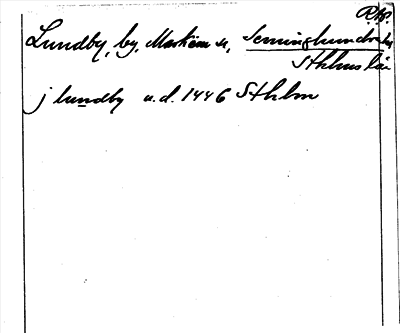 R.A.P.
Lundby, by, Markim sn, Seminghundra hd
Sthlms län
j lundby u.d. 1446 Sthlm